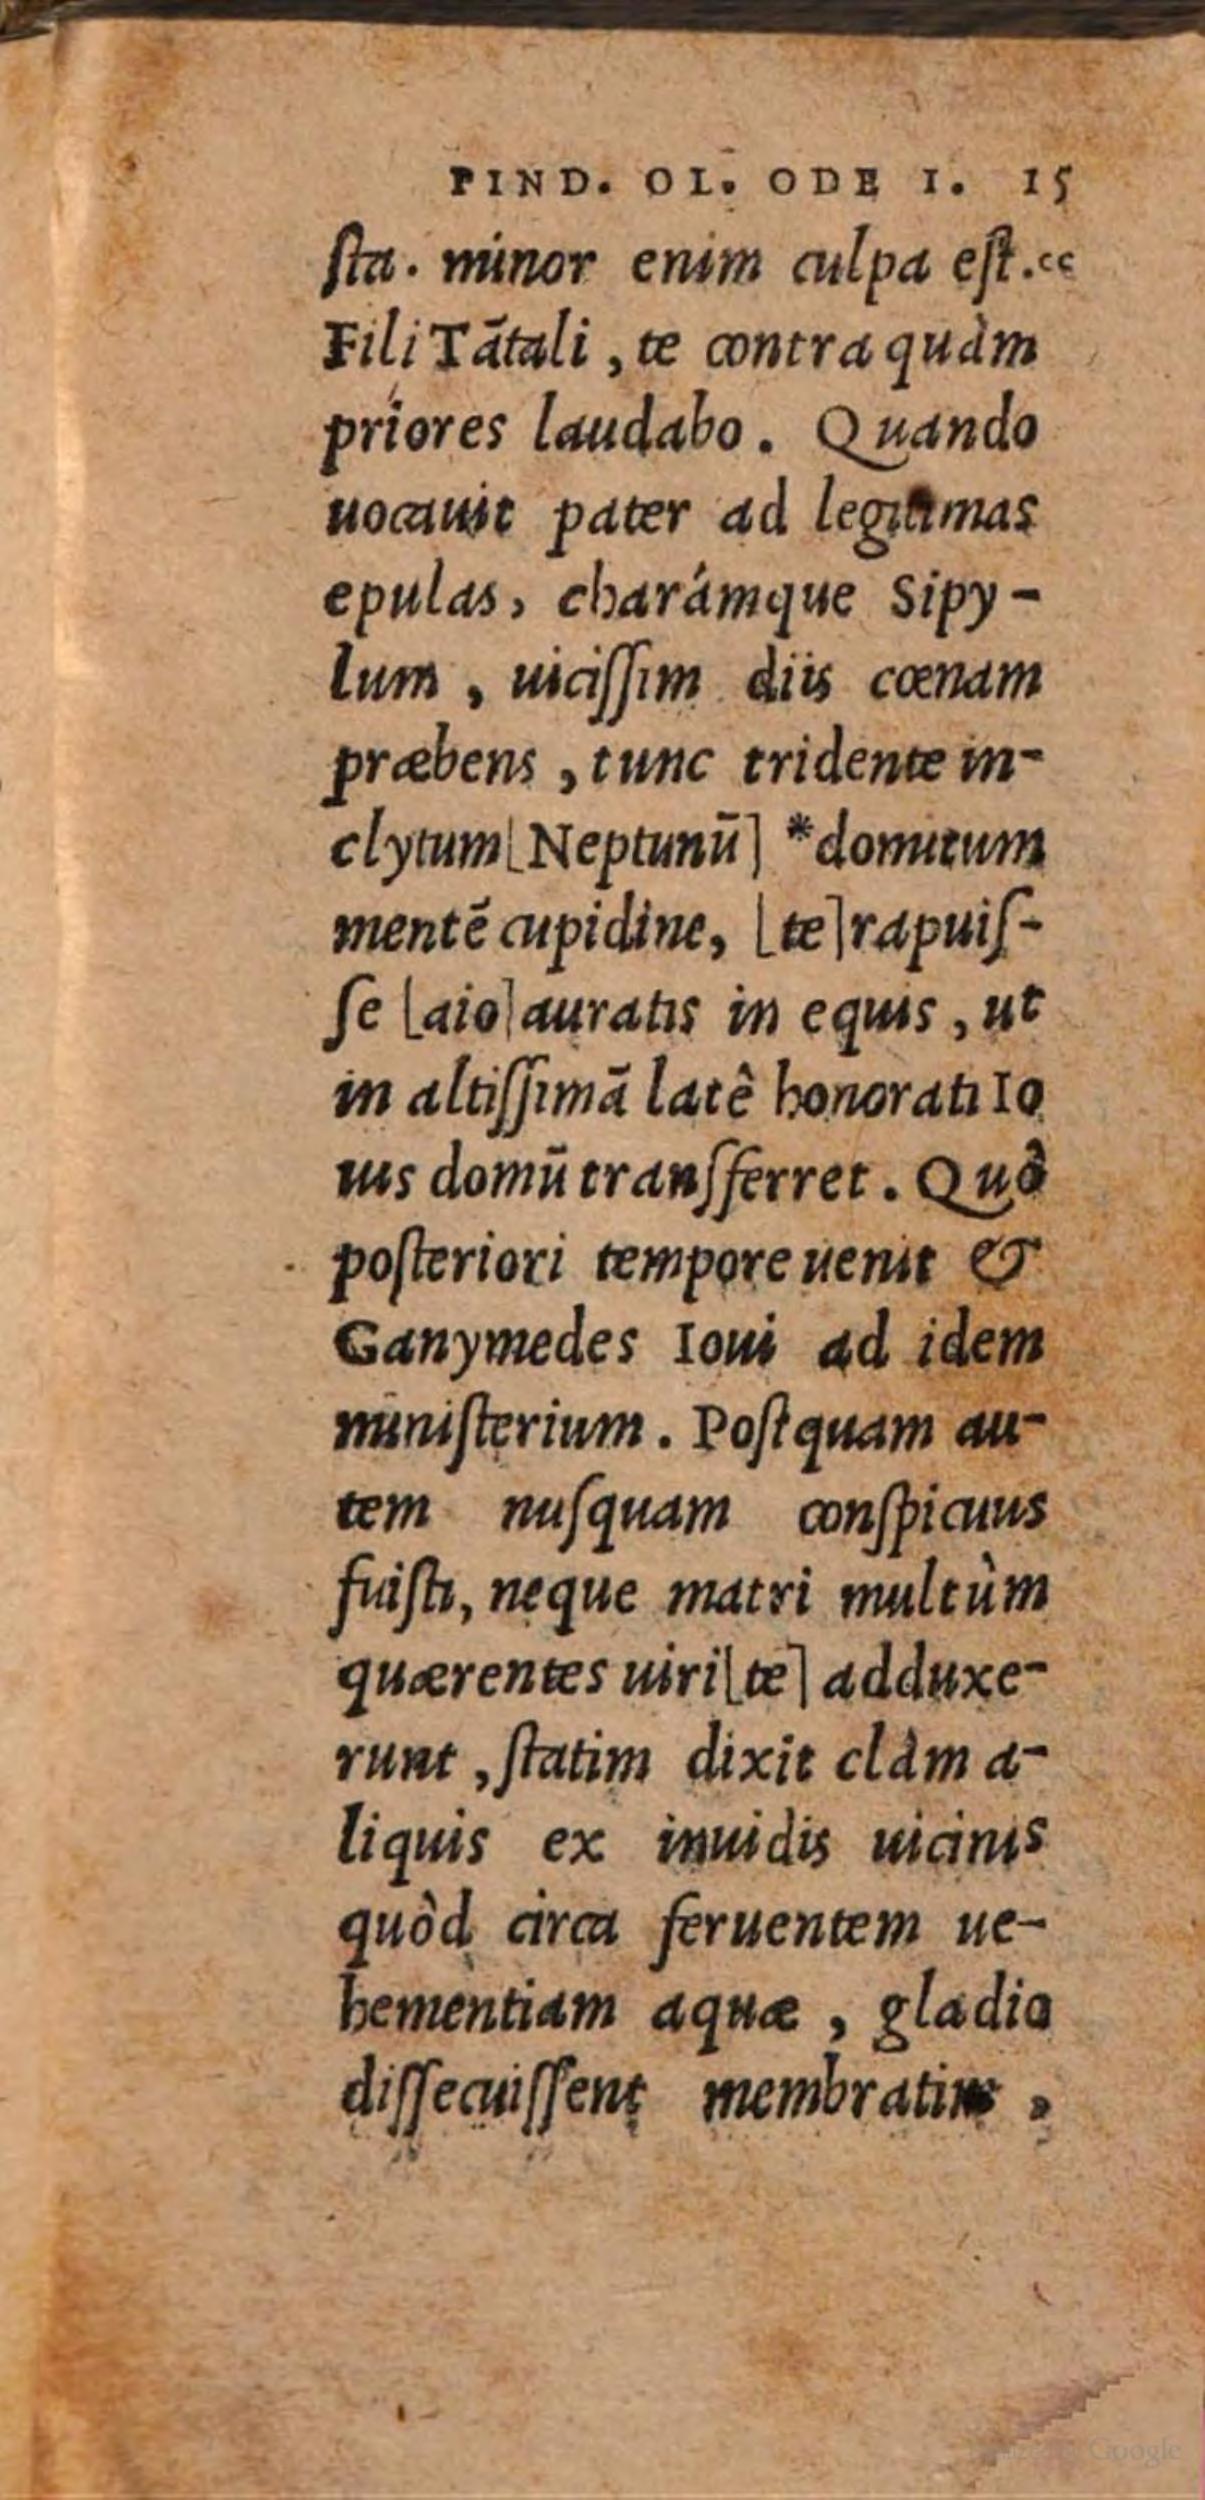 PIND. OL. ODE I. 15
ſta. minor enim culpa eſt.“
Fili Tãtali, te contra quàm
priores laudabo. Quando
uocauit pater ad legitimas
epulas, charámque Sipy-
lum, uiciſſim diis cœnam
præbens, tunc tridente in-
clytum [Neptunũ] *domitum
mentẽ cupidine, [te] rapuiſ-
ſe [aio] auratis in equis, ut
in altiſſimã latê honorati Io
uis domũ tranſferret. Quô
poſteriori tempore uenit &
Ganymedes Ioui ad idem
miniſterium. Poſtquam au-
tem nuſquam conſpicuus
fuiſti, neque matri multùm
quærentes uiri [te] adduxe-
runt, ſtatim dixit clàm a-
liquis ex inuidis uicinis
quòd circa feruentem ue-
hementiam aquæ, gladio
diſſecuiſſent membratim,
Google